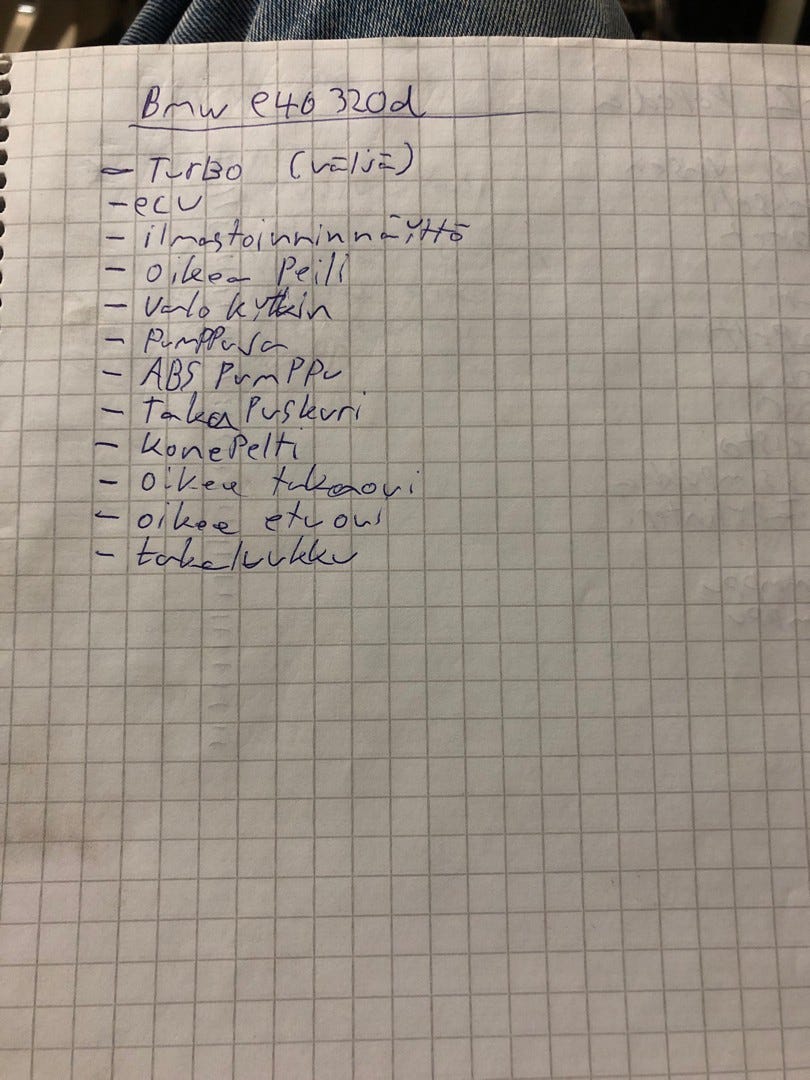 Bmw e46 320d
- Turbo (väljä)
- ecu
- ilmastoinninnäyttö
- oikea Peili
- valo kytkin
- PumPPusa
- ABS PumPPu
- taka Puskuri
- konePelti
- oikee takaovi
- oikee etuovi
- takaluukku